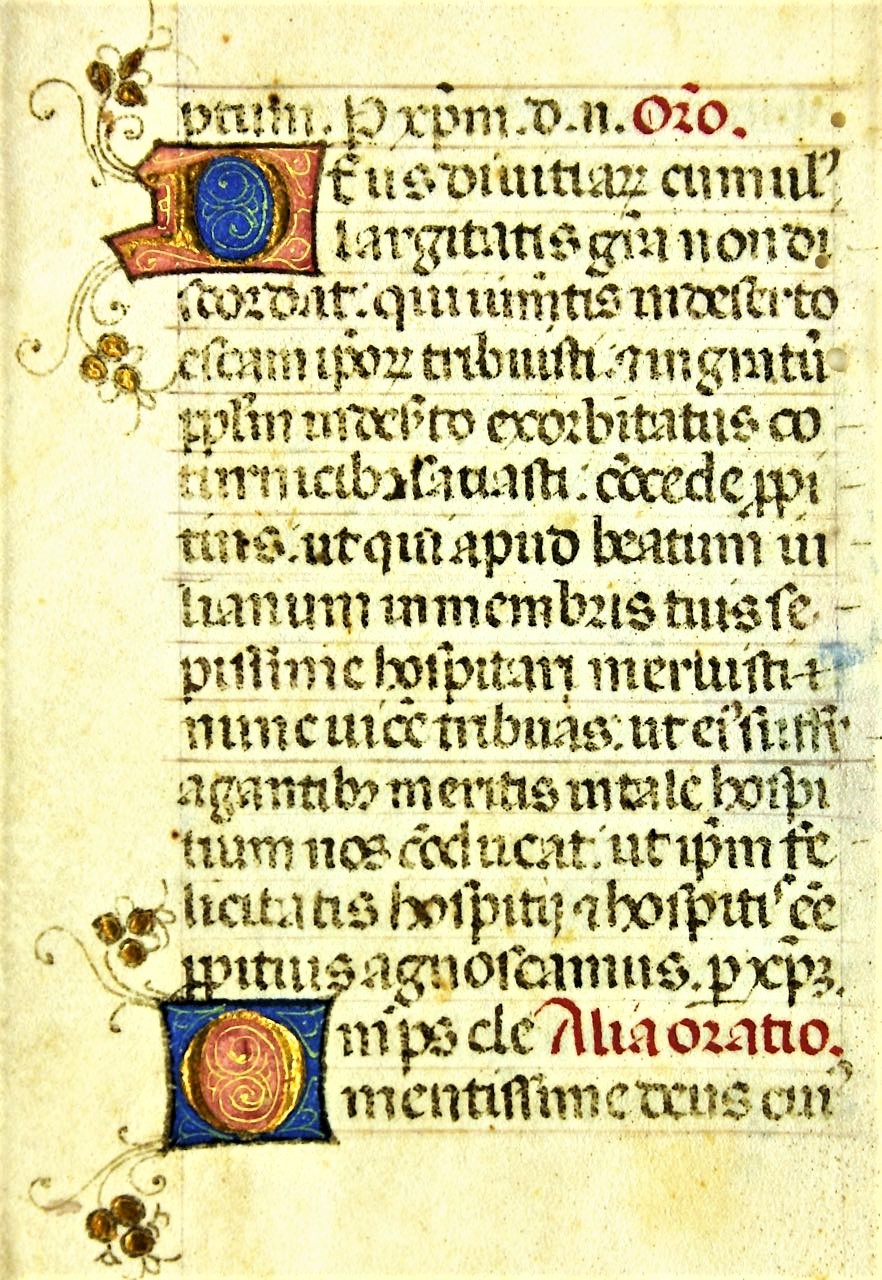 ptum. P xp̄m.d.n. Orō.
D ē us diuitiaꝝ cumul᾿
largitatis gr̄a non di
scordat: qui iumētis in deserto
escam ip̄oꝝ tribuisti: ⁊ ingratū
pplm̄ in des᾿to exorbitatus co
turnicibꝫ satiasti: cōcede ꝓpi
tius: ut qui apud beatum iu
lianum in membris tuis se
pissime hospitari meruisti ⁊
nunc uicē tribuas: ut ei᾿ suffr᾿
agantibꝫ meritis in tale hospi
tium nos cōducat: ut ip̄m fe
licitatis hospitij ⁊ hospitiᵉ cē
ꝓpitius agnoscamus. ꝑ xp̄ꝫ.
O m̄ps cle Alia oratio.
mentissime deus cui᾿